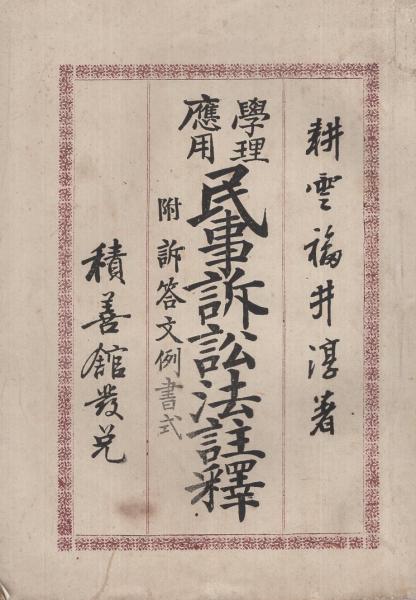 耕雲福井淳著
學理
應用
民事訴訟法註釋
附訴答文例書式
積善館發兌